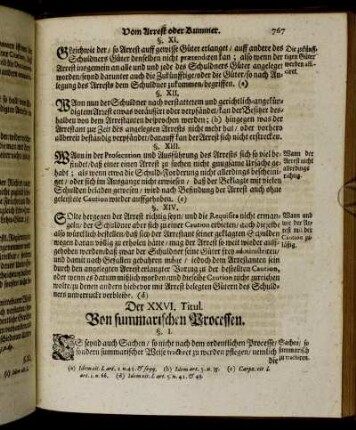 Vom Arrest oder Kummer.
767
§. XI.
Gleichwie der / so Arrest auff gewisse Güter erlanget / auff andere des
Schuldners Güter denselben nicht prætendiren kan; also wenn der
Arrest insgemein an alle und und jede des Schuldners Güter angeleget
worden / seynd darunter auch die Zukünfftige / oder die Güter / so nach An-
legung des Arrests dem Schuldner zukommen / begriffen. (a)
Die zukünff-
tigen Güter
werden
§. XII.
Wann nun der Schuldner nach verstattetem und gerichtlich angekün-
digtem Arrest etwas veräussert oder verpfändet / kan der Besitzer des-
halben von dem Arrestanten besprochen werden; (b) hingegen was der
Arrestant zur Zeit des angelegten Arrests nicht mehr hat / oder vorhero
allbereit beständig verpfändet / darauff kan der Arrest sich nicht erstrecken.
§. XIII.
Wann in der Prosecution und Ausführung des Arrests sich so viel be-
findet / daß einer einen Arrest zu suchen nicht gnungsam Ursache ge-
habt; als wenn etwa die Schuld-Forderung nicht allerdings bescheini-
get / oder sich im Ausgange nicht erwiesen / daß der Beklagte mit vielen
Schulden beladen gewesen / wird nach Befindung der Arrest auch ohne
geleistete Caution wieder auffgehoben. (c)
Wann der
Arrest nicht
allerdings
richtig.
§. XIV.
Solte hergegen der Arrest richtig seyn / und die Requisita nicht erman-
geln / der Schuldener aber sich zu einer Caution erbieten / auch dieselbe
also würcklich bestellen / daß sich der Arrestant seiner geklagten Schulden
wegen daran völlig zu erholen hätte / mag der Arrest so weit wieder auff-
gehoben werden / daß zwar der Schuldner seine Güter frey administriren /
und damit nach Gefallen gebahren möge / jedoch des Arrestanten sein
durch den angelegten Arrest erlangter Vorzug zu der bestelleten Caution,
oder wenn es daran mißlich werden / und dieselbe Caution nicht zureichen
wolte / zu denen andern hiebevor mit Arrest belegten Gütern des Schuld-
ners unverruckt verbleibe. (d)
Wann und
wie der Ar-
rest mit der
Caution zu-
läßig.
Der XXVI. Titul.
Von summarischen Processen.
§. I.
Es seynd auch Sachen / so nicht nach dem ordentlichen Processe /
sondern summarischer Weise tractiret zu werden pflegen / nemlich
die
Sachen / so
summarisch
zu tractiren.